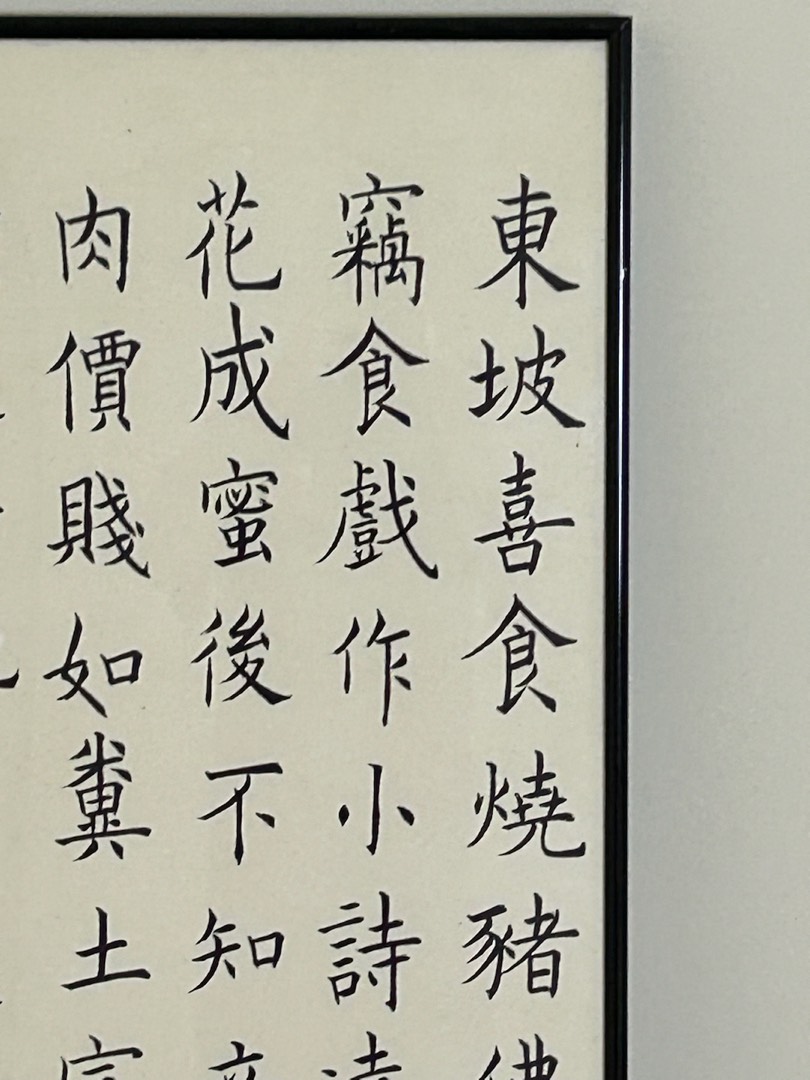 東坡喜食燒豬
竊食戲作小詩
花成蜜後不知
肉價賤如糞土